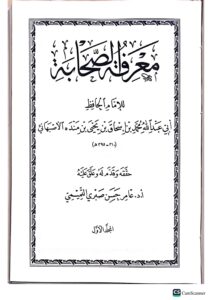 معرفة الصحابة
للإمام الحافظ
أبي عبد الله محمد بن إسحاق بن يحيى بن منده الأصبهاني
(٣١٠-٣٩٥ هـ)
حققه وقدم له وعلق عليه
أ.د. عامر حسن صبري التميمي
المجلد الأول
CS CamScanner